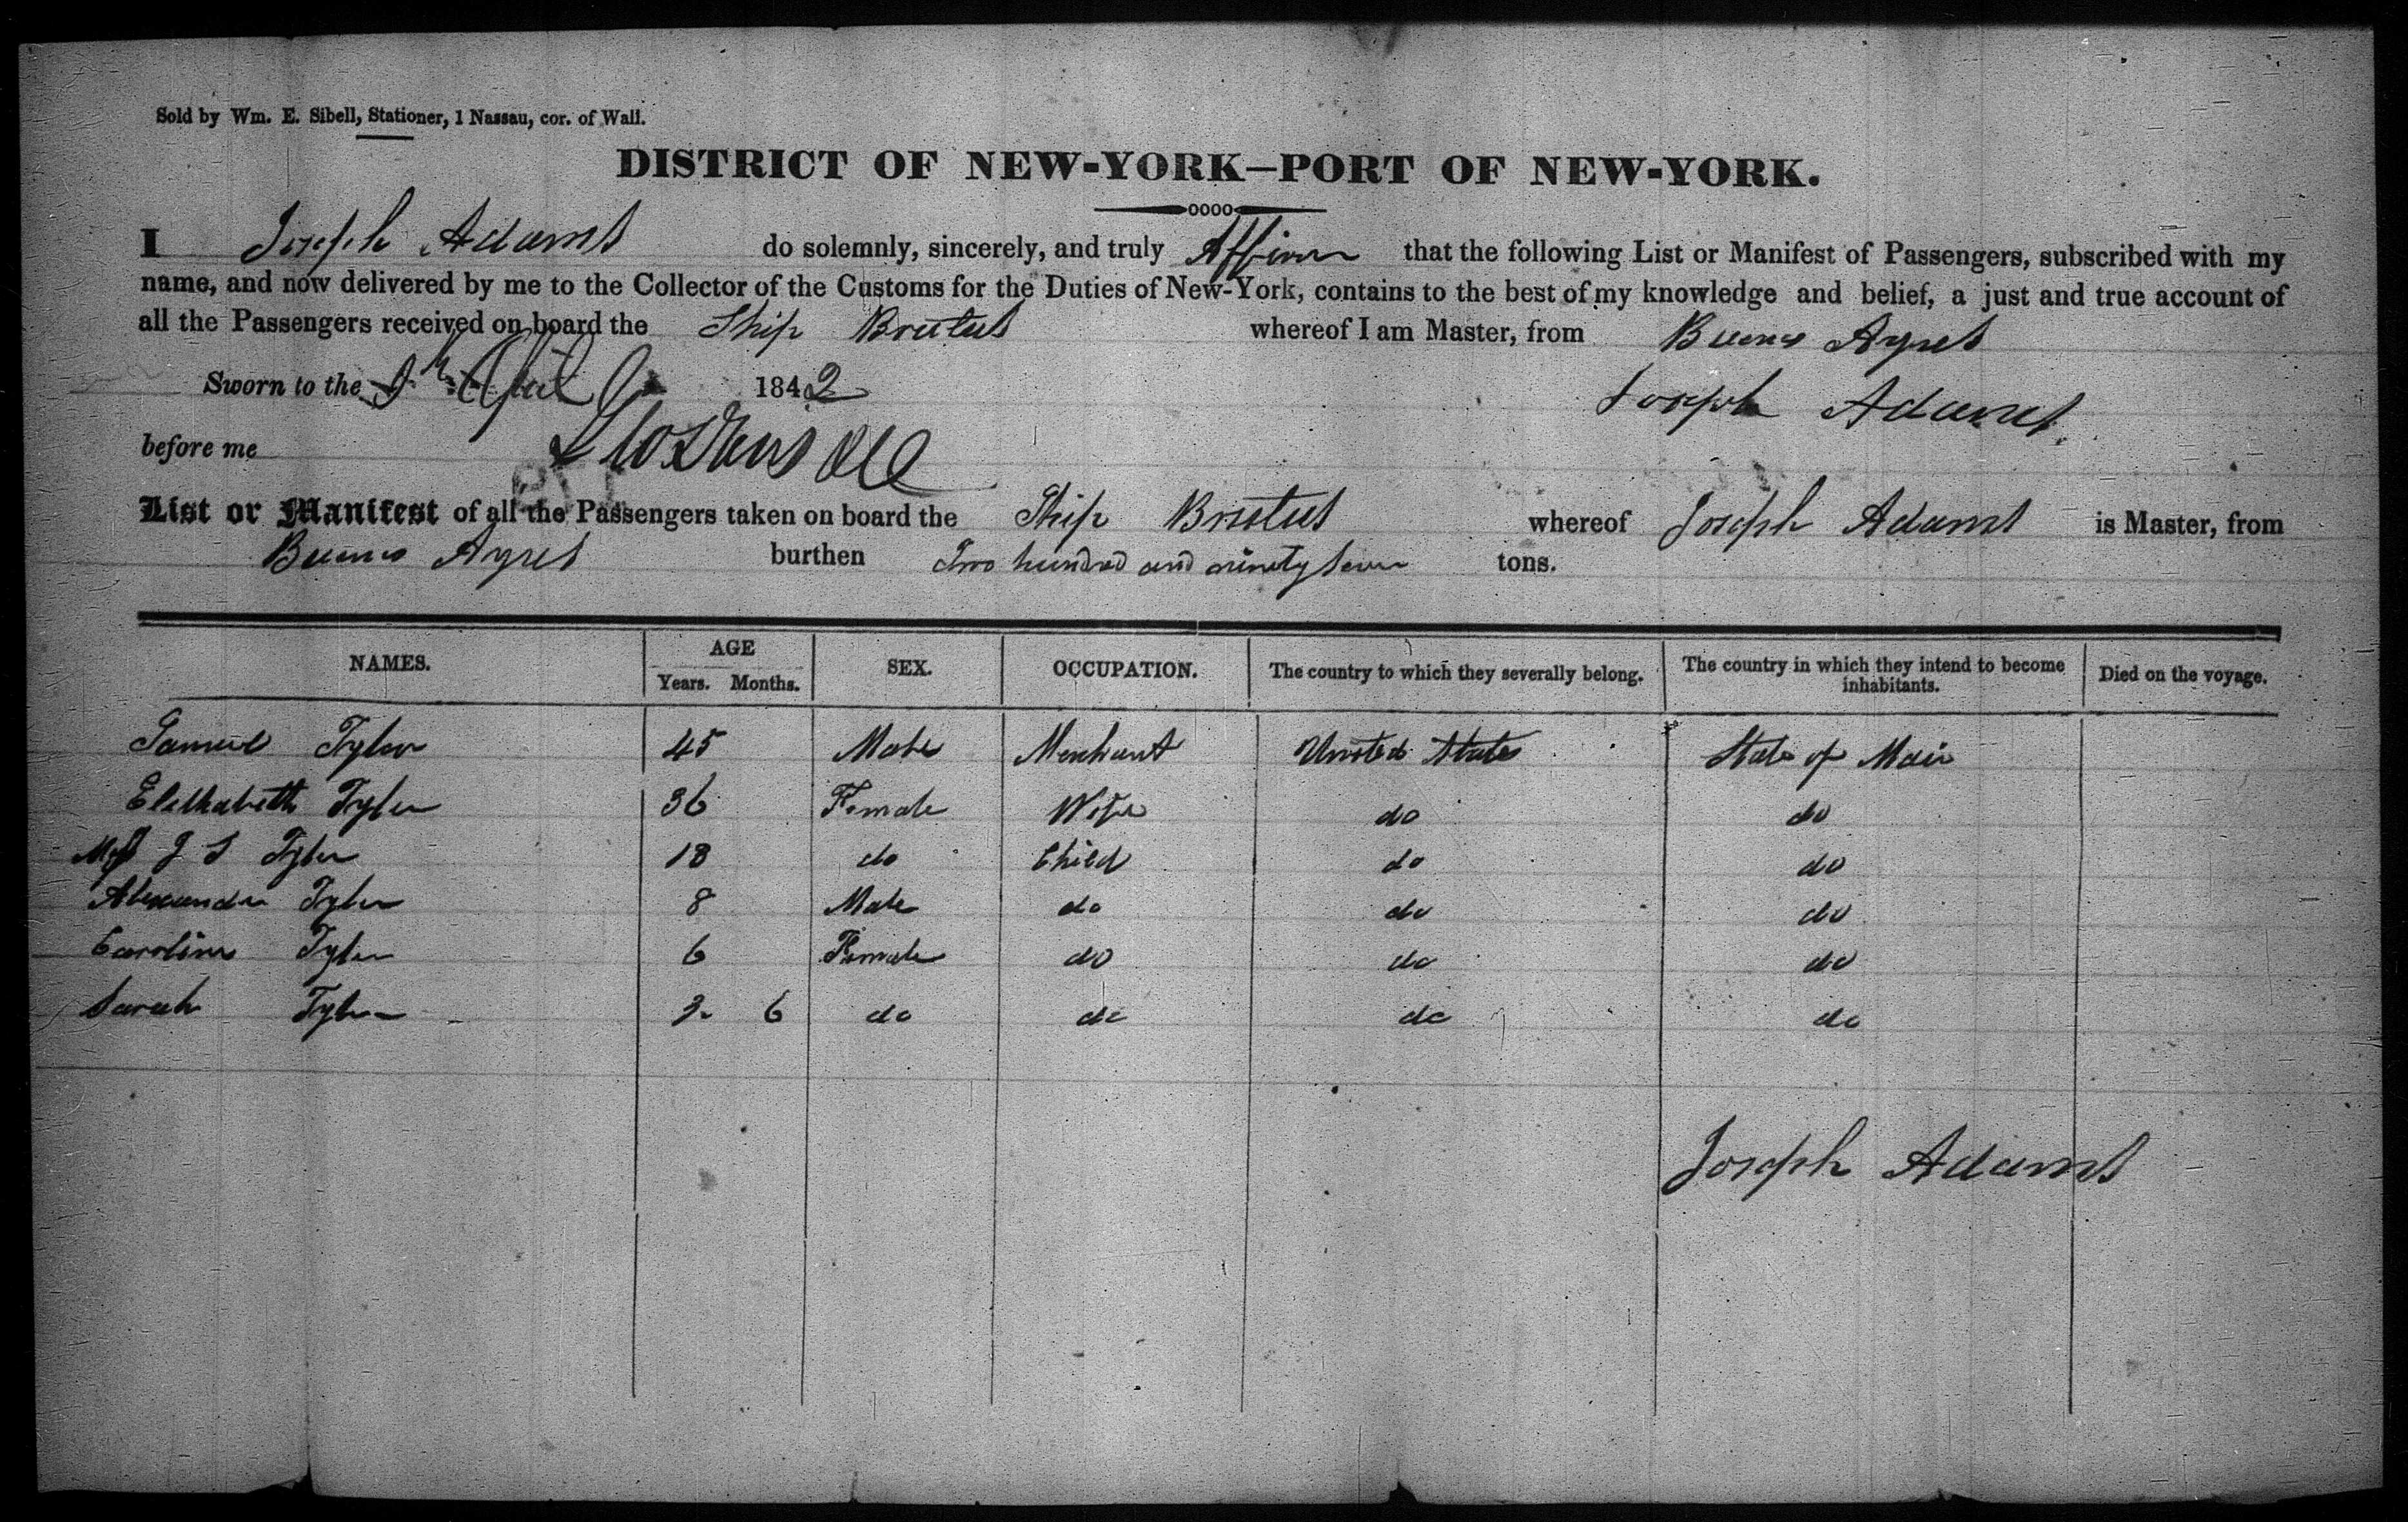 Sold by Wm. E. Sibell, Stationer, 1 Nassau, cor. of Wall.
DISTRICT OF NEW-YORK—PORT OF NEW-YORK.
I Joseph Adams do solemnly, sincerely, and truly Affirm that the following List or Manifest of Passengers, subscribed with my
name, and now delivered by me to the Collector of the Customs for the Duties of New-York, contains to the best of my knowledge and belief, a just and true account of
all the Passengers received on board the Ship Brutus whereof I am Master, from Buenos Ayres
Sworn to the April 1842 Joseph Adams
before me
List or Manifest of all the Passengers taken on board the Ship Brutus whereof Joseph Adams is Master, from
Buenos Ayres burthen Two hundred and ninety seven tons.
NAMES. AGE Years. Months. SEX. OCCUPATION. The country to which they severally belong. The country in which they intend to become inhabitants. Died on the voyage.
Samuel Tyler 45 Male Merchant United States State of Main
Elethabeth Tyler 36 Female Wife do do
J S Tyler 18 do Child do do
Alexander Tyler 8 Male do do do
Caroline Tyler 6 Female do do do
Sarah Tyler 3 6 do do do do
Joseph Adams